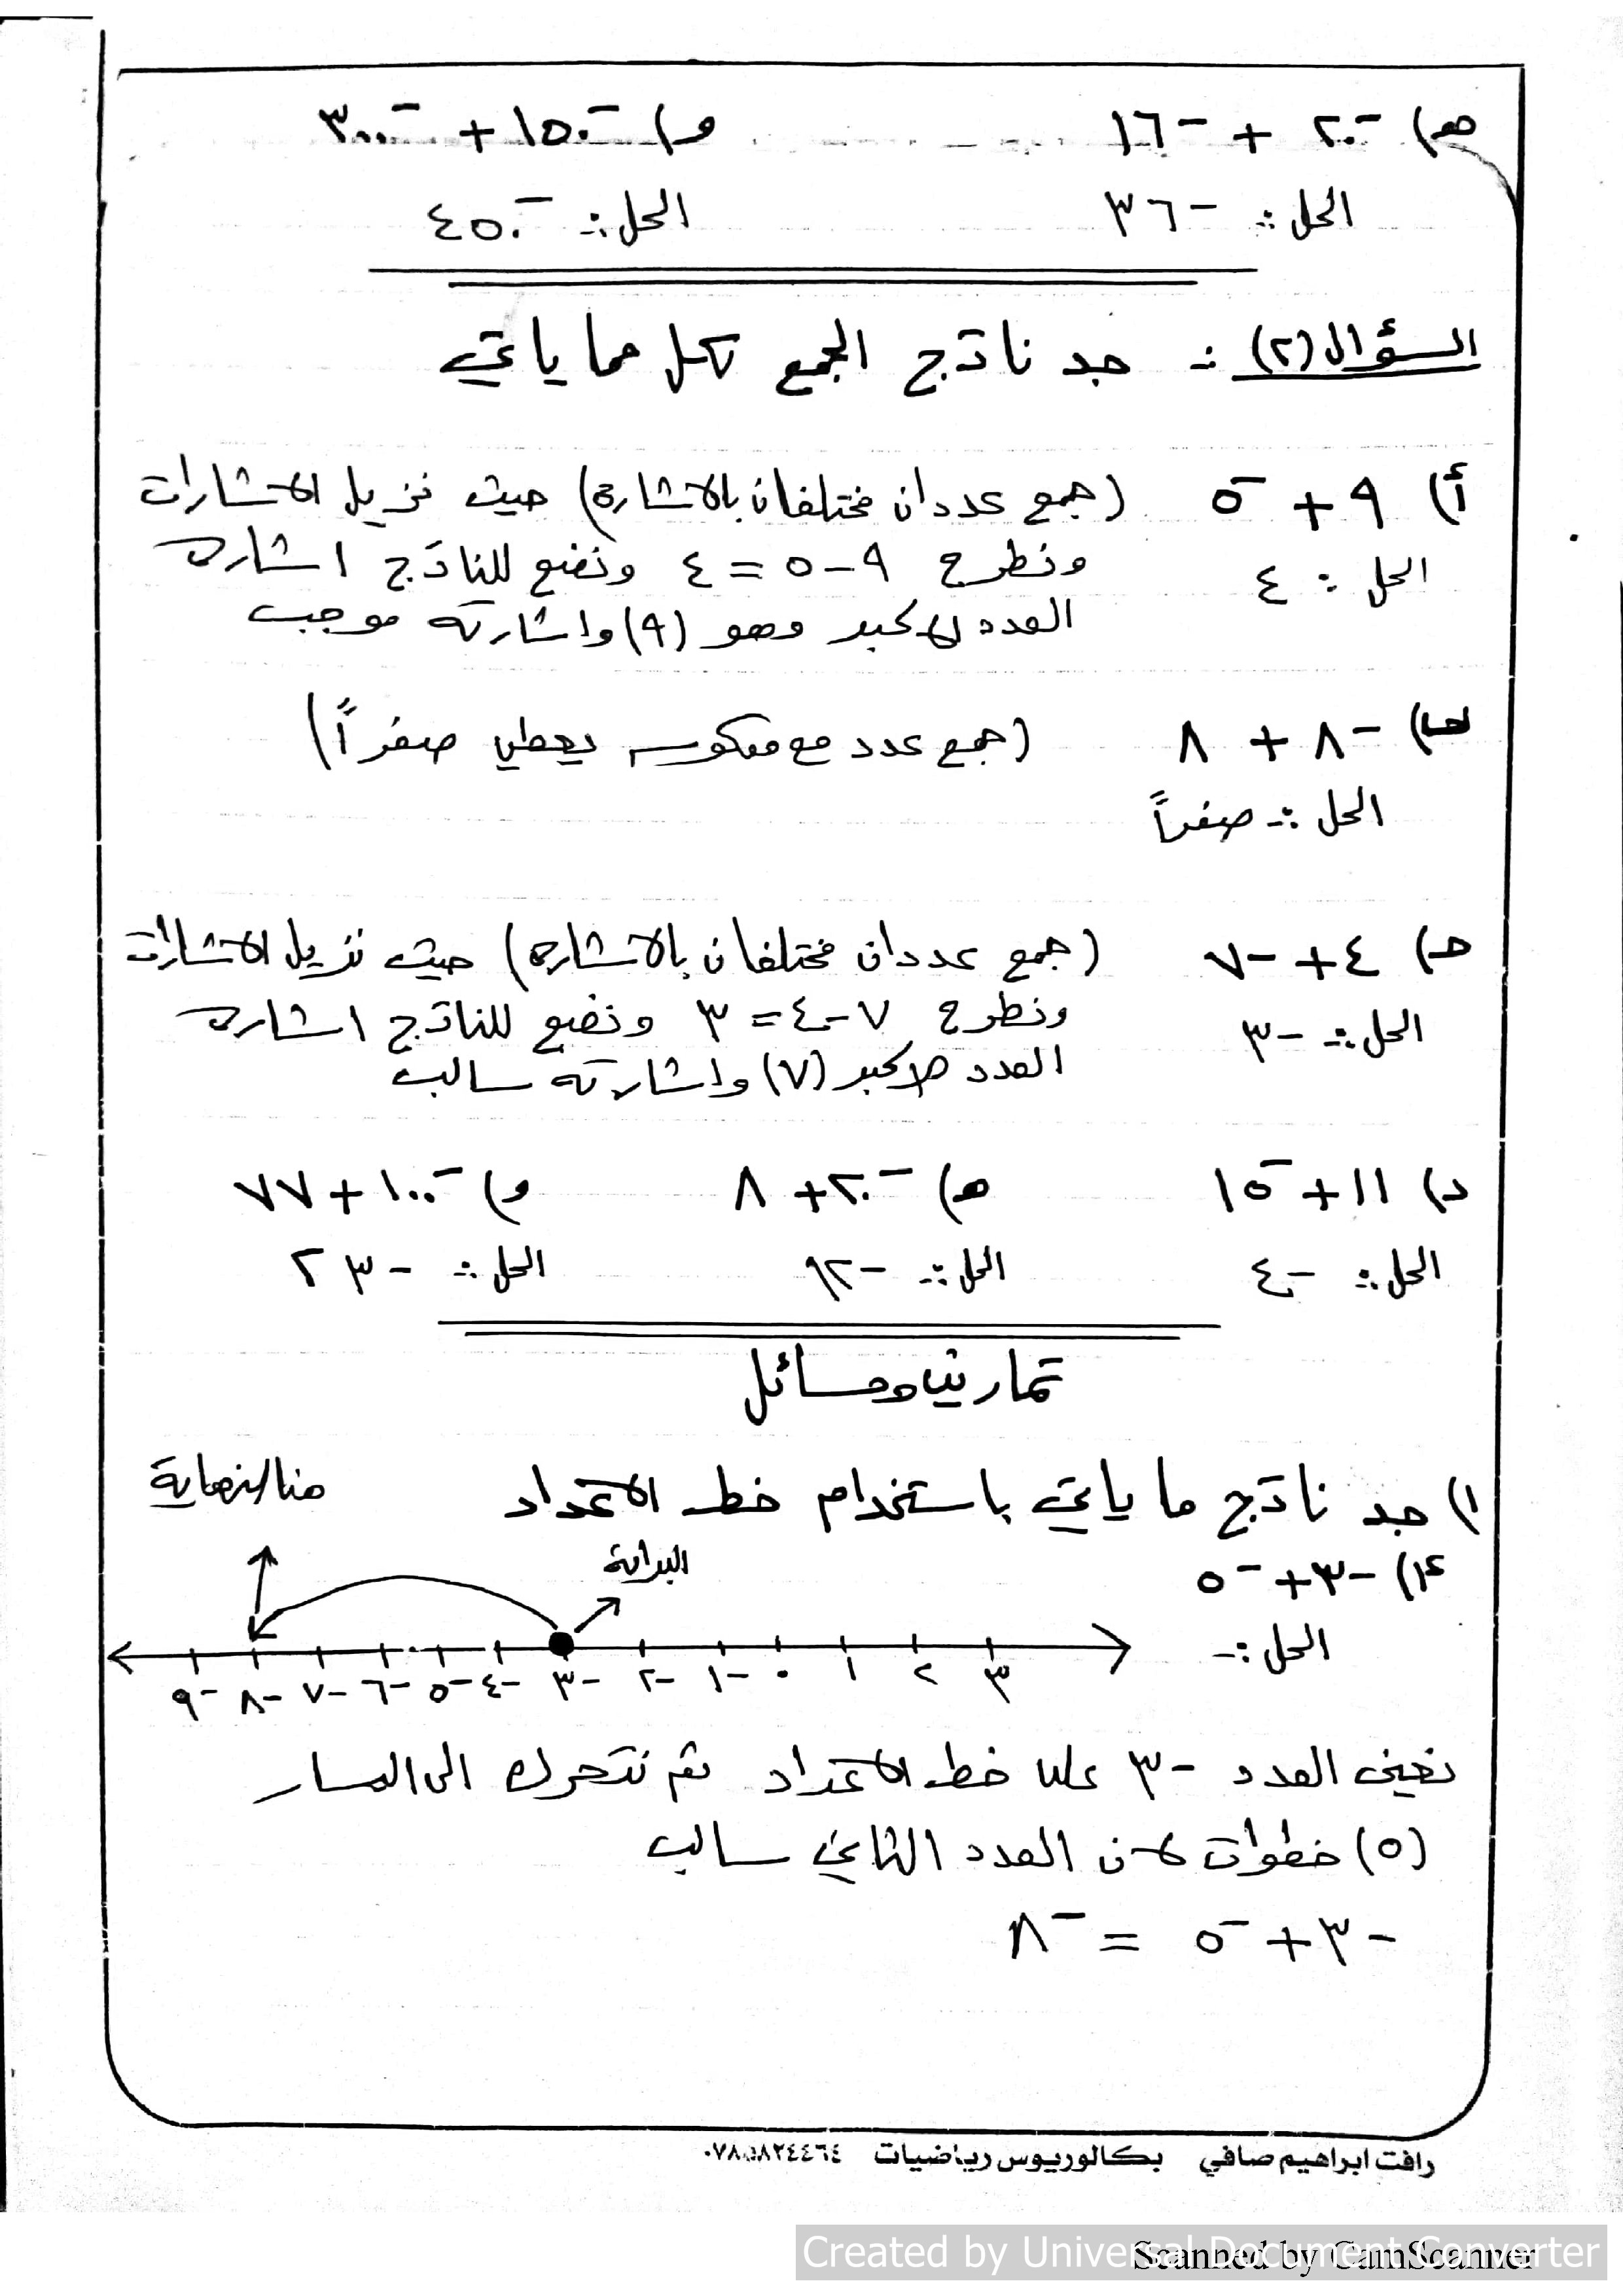 هـ) -٢٠ + -١٦ و) -١٥٠ + -٣٠٠
الحل :- -٣٦ الحل :- -٤٥٠
السؤال (٢) :- جد ناتج الجمع لكل مما ياتي
أ) ٩ + -٥ (جمع عددان مختلفان بالاشارة) حيث نزيل الاشارات
الحل : ٤ ونطرح ٩ - ٥ = ٤ ونضع للناتج اشارة
العدد الاكبر وهو (٩) واشارته موجب
ب) -٨ + ٨ (جمع عدد مع معكوسه يعطي صفراً)
الحل :- صفراً
جـ) ٤ + -٧ (جمع عددان مختلفان بالاشارة) حيث نزيل الاشارات
الحل :- -٣ ونطرح ٧ - ٤ = ٣ ونضع للناتج اشارة
العدد الاكبر (٧) واشارته سالب
د) ١١ + -١٥ هـ) -٢٠ + ٨ و) -١٠٠ + ٧٧
الحل :- -٤ الحل :- -١٢ الحل :- -٢٣
تمارين ومسائل
١) جد ناتج ما ياتي باستخدام خط الاعداد هنا النهاية
أ) -٣ + -٥ البداية
الحل :-
-٩ -٨ -٧ -٦ -٥ -٤ -٣ -٢ -١ ٠ ١ ٢ ٣
نعين العدد -٣ على خط الاعداد ثم نتحرك الى اليسار
(٥) خطوات لان العدد الثاني سالب
-٣ + -٥ = -٨
رافت ابراهيم صافي بكالوريوس رياضيات ٠٧٨٥٨٢٤٤٦٤
Created by Universal Document Converter
Scanned by CamScanner